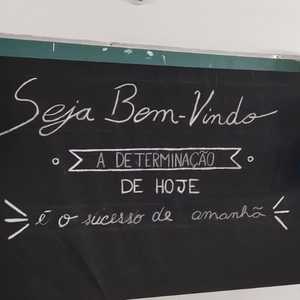 Seja Bem-Vindo
A DETERMINAÇÃO
DE HOJE
é o sucesso de amanhã